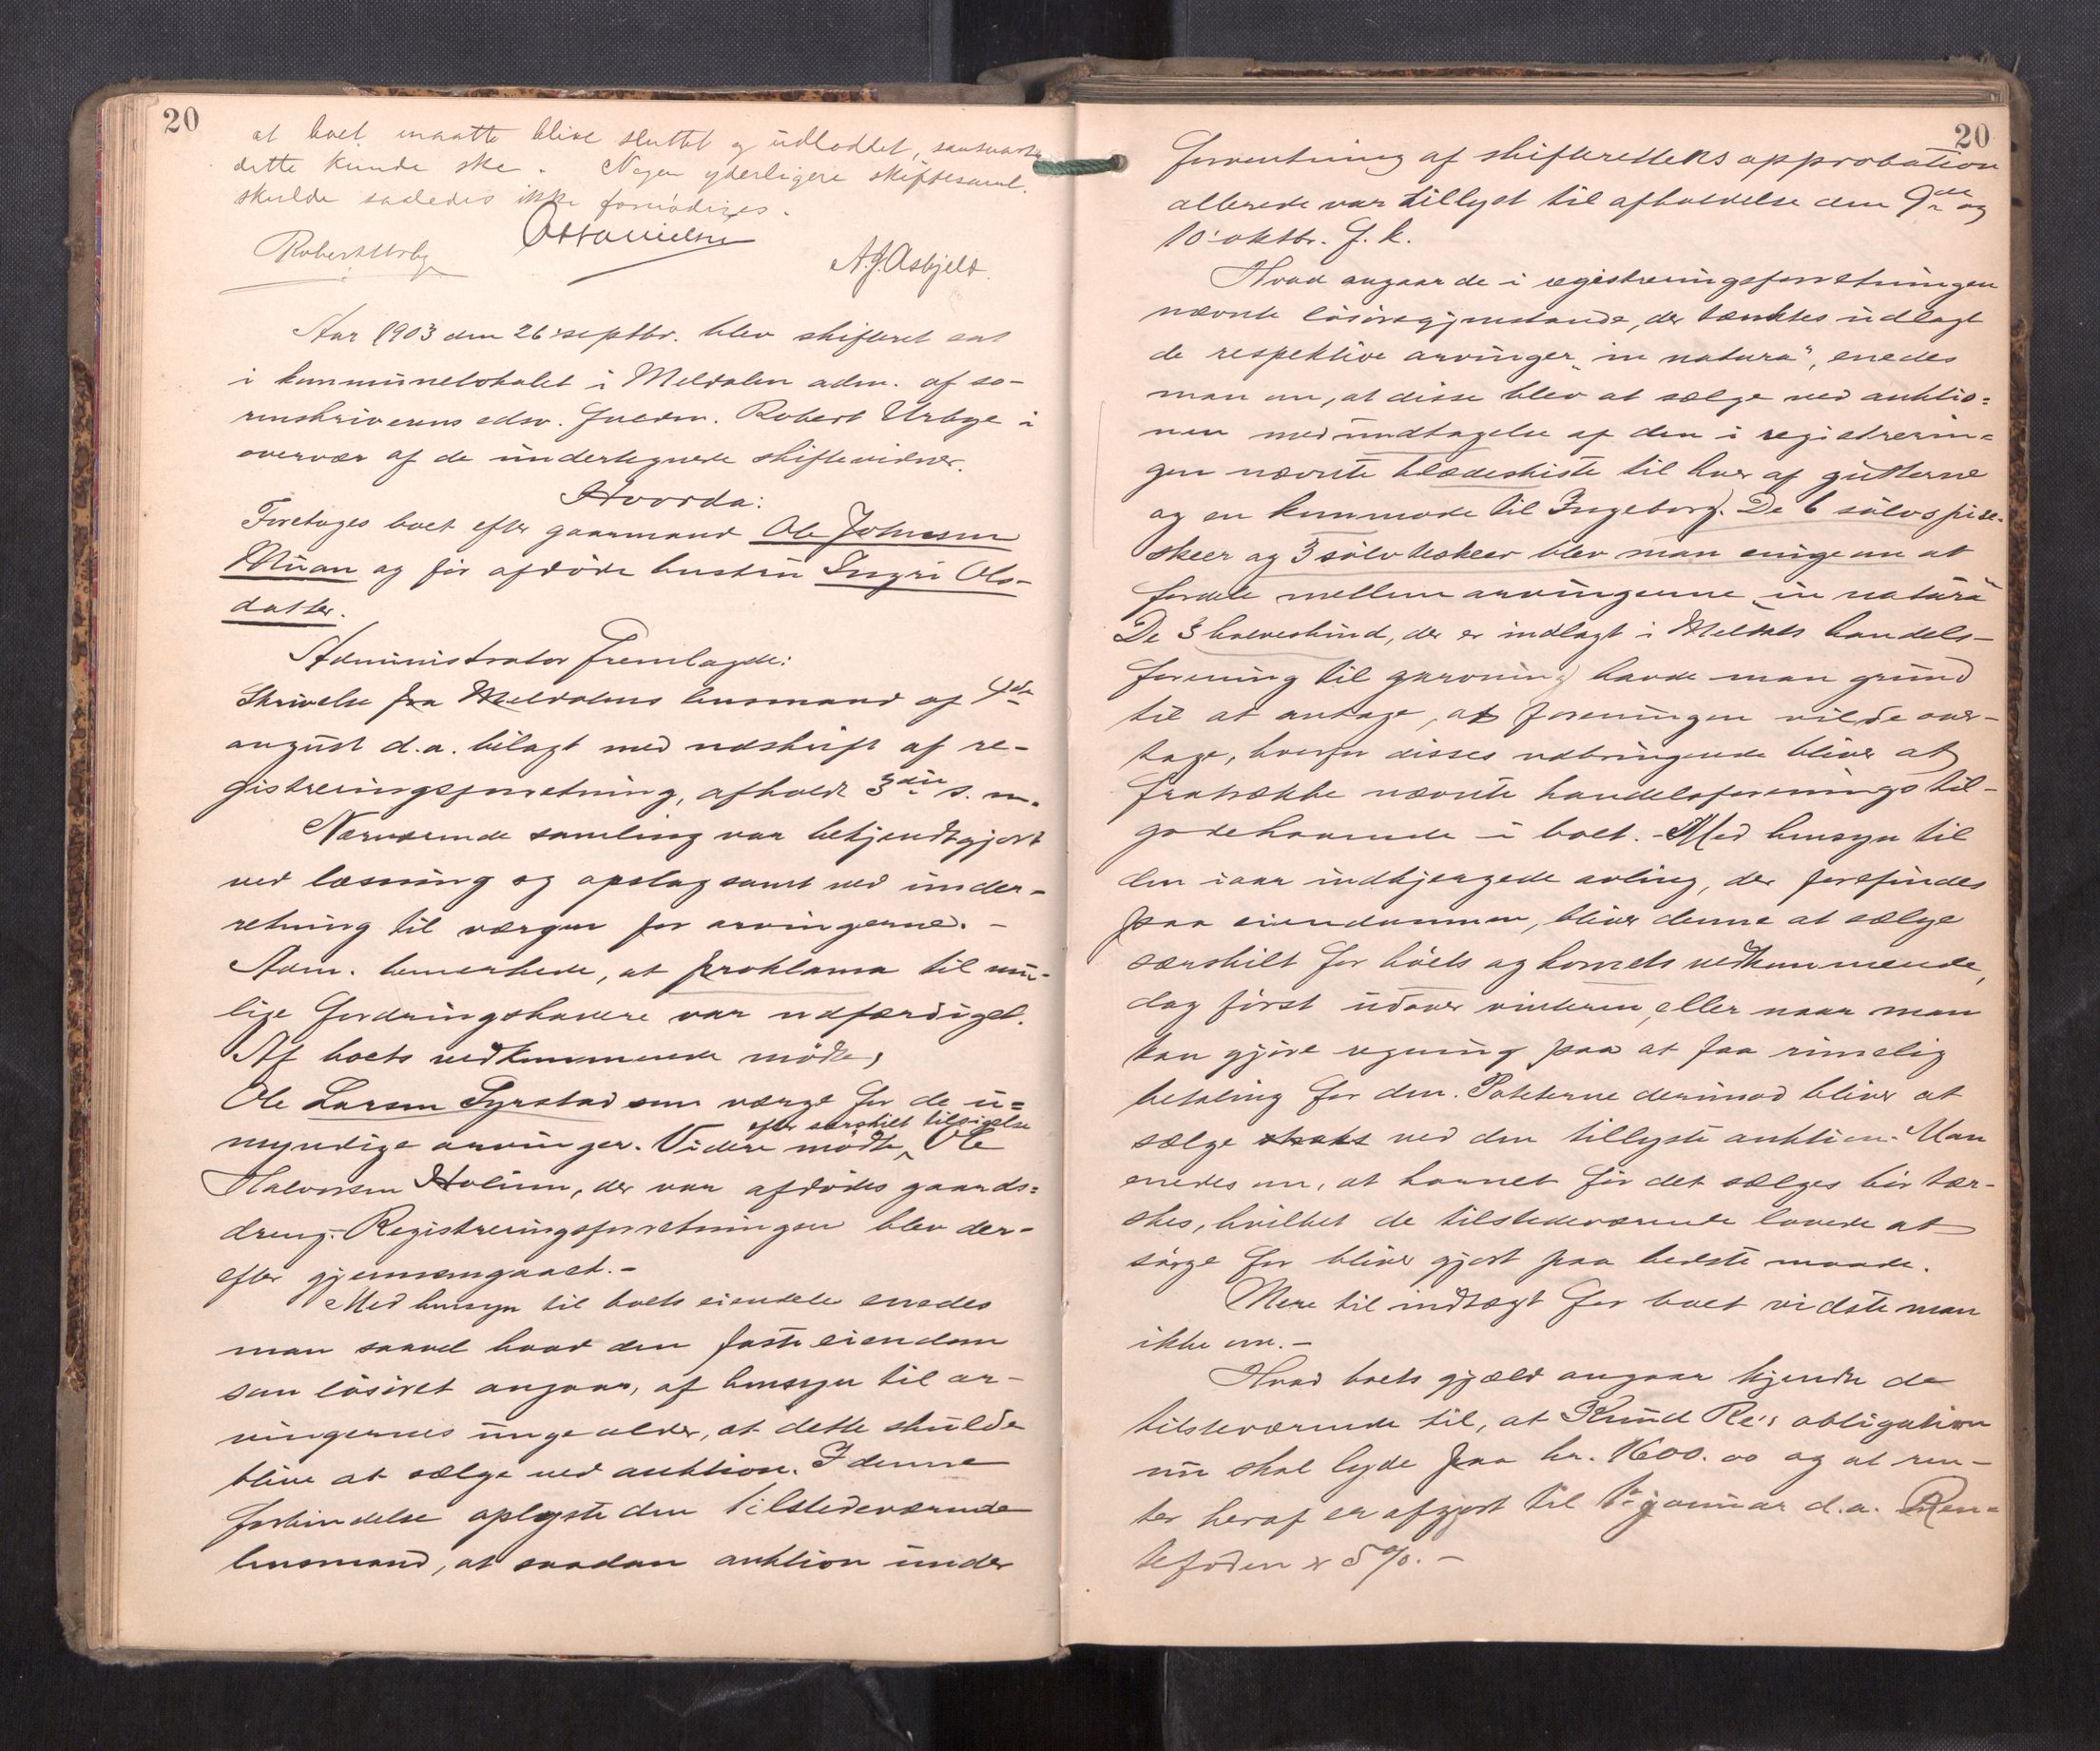 20
at boet maatte blive sluttet og udloddet, saasnart
dette kunde ske. Nogen yderligere skiftesaml.
skulde saaledes ikke fornødiges.
Robert Urbye Otto Nielsen
A. J. Asbjeld.
Aar 1903 den 26. septbr. blev skifteret sat
i kommunelokalet i Meldalen adm. af so-
renskriverens edsv. fuldm. Robert Urbye i
overvær af de undertegnede skiftevidner.
Hvorda:
Foretoges boet efter gaarmand Ole Johnsen
Muan og før afdøde hustru Ingri Ols-
datter.
Administrator fremlagde:
Skrivelse fra Meldalens lensmand af 4de
august d.a. bilagt med udskrift af re-
gistreringsforretning, afholdt 3die s. m.
Nærværende samling var bekjendtgjort
ved læsning og opslag samt ved under-
retning til værgen for arvingerne. -
Adm. bemærkede, at proklama til mu-
lige fordringshavere var udfærdiget.
Af boets vedkommende mødte,
Ole Larsen Syrstad som værge for de u=
myndige arvinger. Videre mødte efter særskilt tilsigelse Ole
Halvorsen Holium, der var afdødes gaards=
dreng. Registreringsforretningen blev der-
efter gjennemgaaet. -
Med hensyn til boets eiendele enedes
man saavel hvad den faste eiendom
som løsøret angaar, af hensyn til ar-
vingernes unge alder, at dette skulde
blive at sælge ved auktion. I denne
forbindelse oplyste den tilstedeværende
lensmand, at saadan auktion under
20
forventning af skifterettens approbation
allerede var tillyst til afholdelse den 9de og
10. oktbr. f. k.
Hvad angaar de i registreringsforretningen
nævnte løsøregjenstande, der tænktes udlagt
de respektive arvinger "in natura", enedes
man om, at disse blev at sælge ved auktio=
nen med undtagelse af den i registrerin=
gen nævnte klædeskiste til hver af gutterne
og en kommode til Ingeborg. De 6 sølvspise-
skeer og 3 sølvteskeer blev man enige om at
fordele mellem arvingerne "in natura"
De 3 kalveskind, der er indlagt i Meldals handels-
forening til garvning havde man grund
til at antage, at foreningen vilde over-
tage, hvorfor disses udbringende bliver at
fratrække nævnte handelsforenings til-
godehavende i boet. - Med hensyn til
den iaar indbjergede avling, der forefindes
paa eiendommen, bliver denne at sælge
særskilt for høets og kornets vedkommende,
dog først udover vinteren, eller naar man
kan gjøre regning paa at faa rimelig
betaling for den. Poteterne derimod bliver at
sælge straks ved den tillyste auktion. Man
enedes om, at kornet før det sælges bør tær-
skes, hvilket de tilstedeværende lovede at
sørge for bliver gjort paa bedste maade.
Mere til indtægt for boet vidste man
ikke om. -
Hvad boets gjæld angaar kjendte de
tilsteværende til, at Knud Re's obligation
nu skal lyde paa kr. 1600.00 og at ren-
ter heraf er afgjort til 1. januar d.a. Ren=
tefoden er 5 %. -